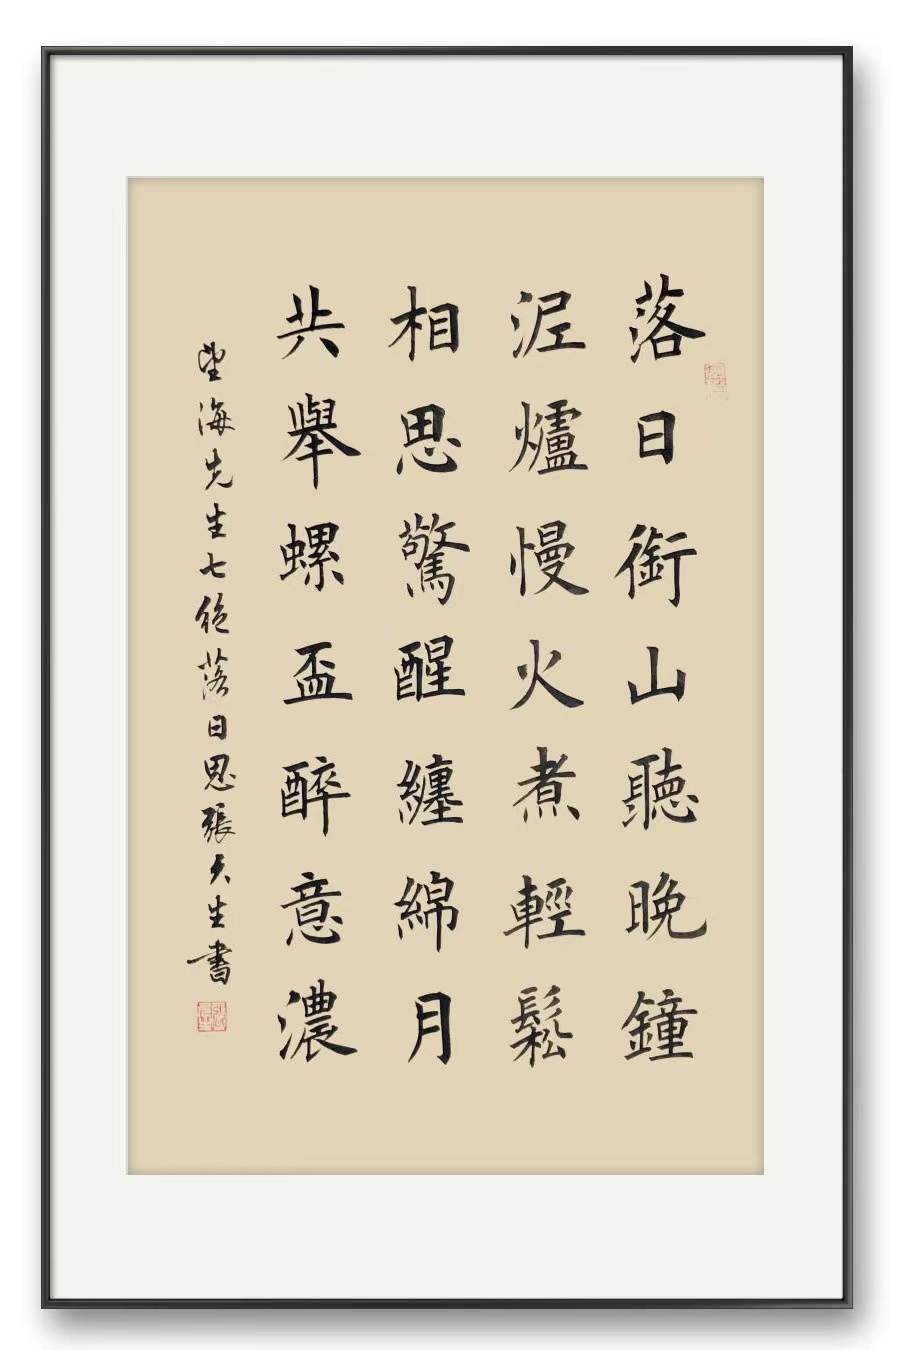 落日銜山聽晚鐘
泥爐慢火煮輕鬆
相思驚醒纏綿月
共舉螺盃醉意濃
望海先生七絕落日思張天生書